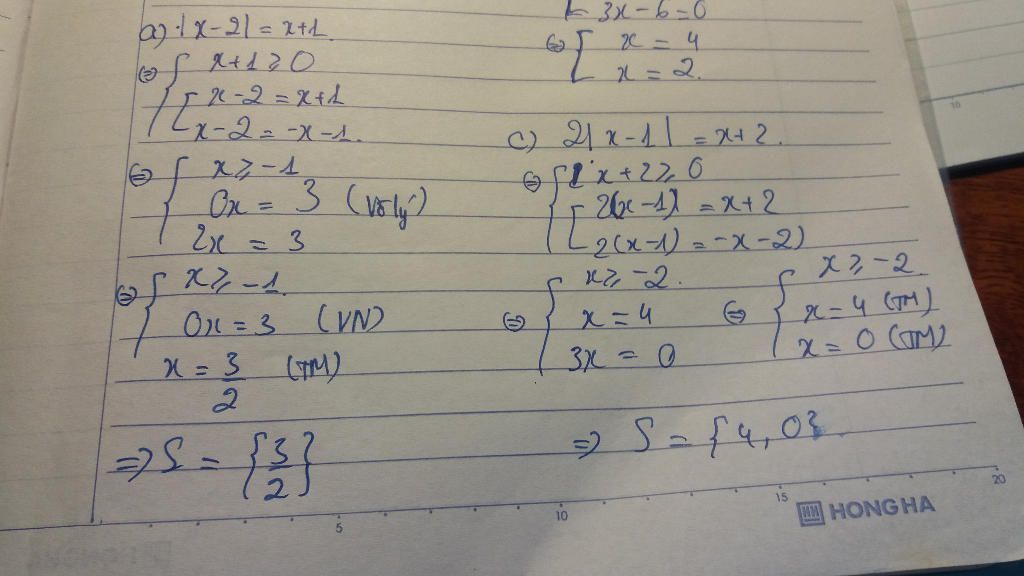 a) |x-2| = x+1
⇔ { x+1 ≥ 0
[ x-2 = x+1
x-2 = -x-1.
⇔ { x ≥ -1
0x = 3 (Vô lý)
2x = 3
⇔ { x ≥ -1
0x = 3 (VN)
x = 3/2 (TM)
=> S = {3/2}
3x-6=0
⇔ [ x = 4
x = 2.
c) 2|x-1| = x+2.
⇔ { x+2 ≥ 0
[ 2(x-1) = x+2
2(x-1) = -x-2)
⇔ { x ≥ -2.
x = 4
3x = 0
⇔ { x ≥ -2
x = 4 (TM)
x = 0 (TM)
=> S = {4, 0}
5 10 15 20
HONG HA
10